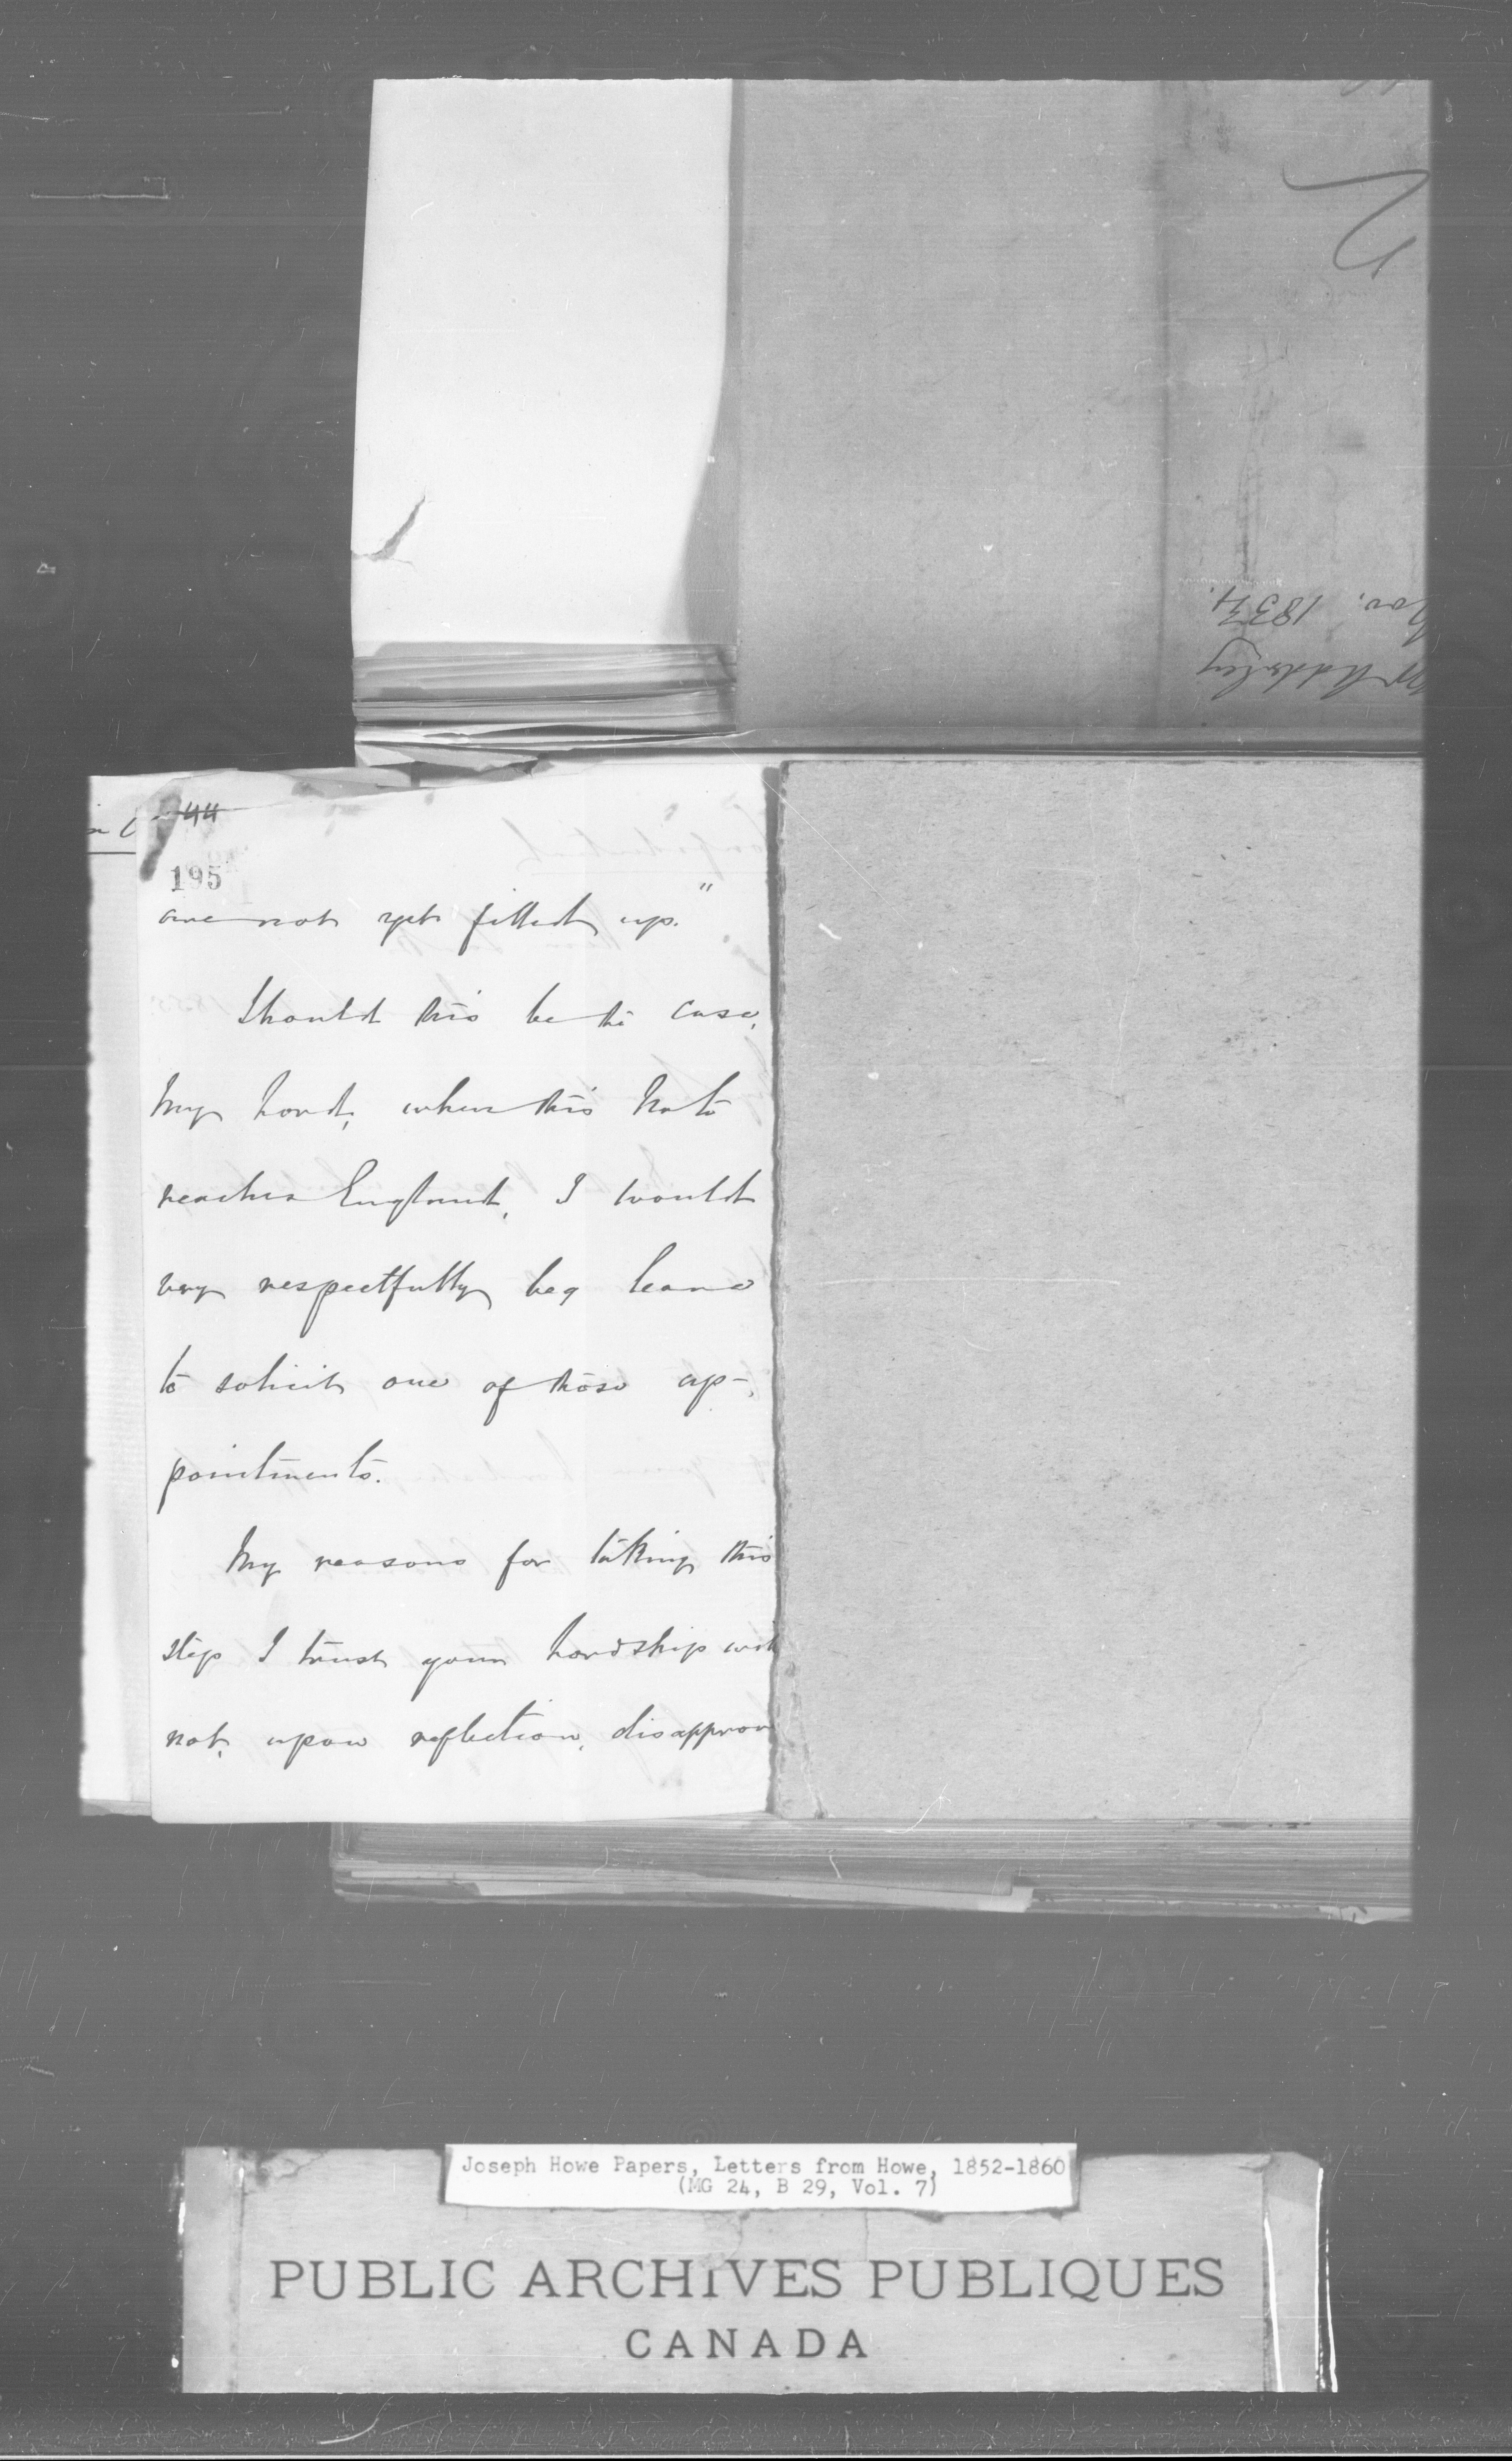 Nov. 1834.
Mr Adderley
44
195
are not yet filled up."
Should this be the case,
My Lord, when this Note
reaches England, I would
very respectfully beg leave
to solicit one of those ap-
pointments.
My reasons for taking this
step I trust your Lordship will
not, upon reflection, disapprove
Joseph Howe Papers, Letters from Howe, 1852-1860
(MG 24, B 29, Vol. 7)
PUBLIC ARCHIVES PUBLIQUES
CANADA